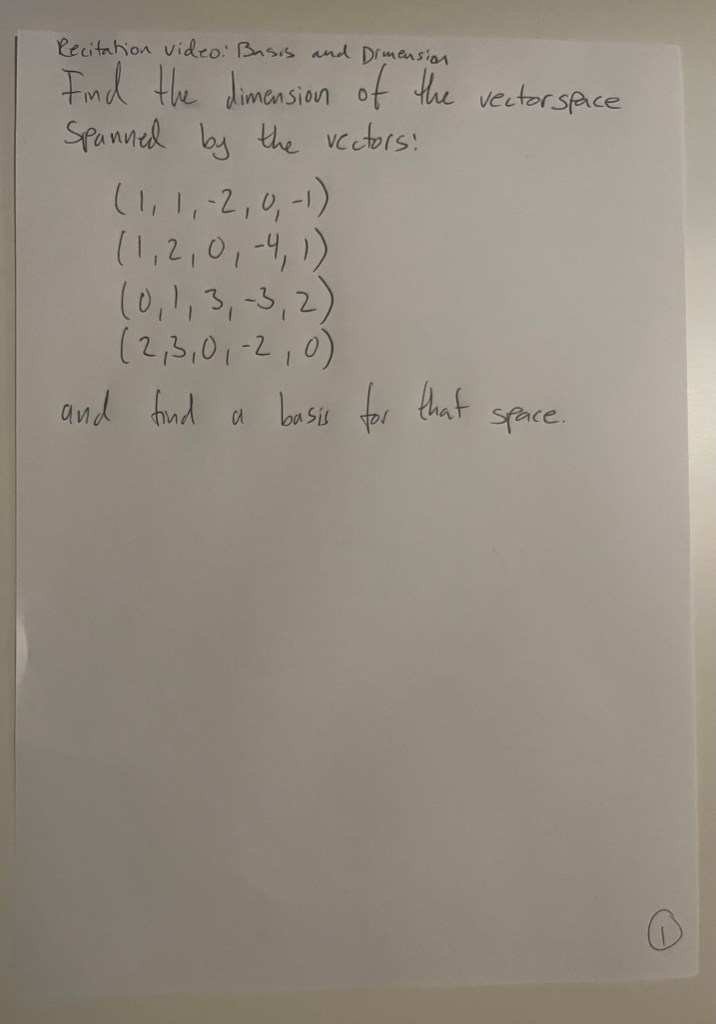 Recitation video: Basis and Dimension
Find the dimension of the vectorspace
Spanned by the vectors:
(1, 1, -2, 0, -1)
(1, 2, 0, -4, 1)
(0, 1, 3, -3, 2)
(2, 3, 0, -2, 0)
and find a basis for that space.
1